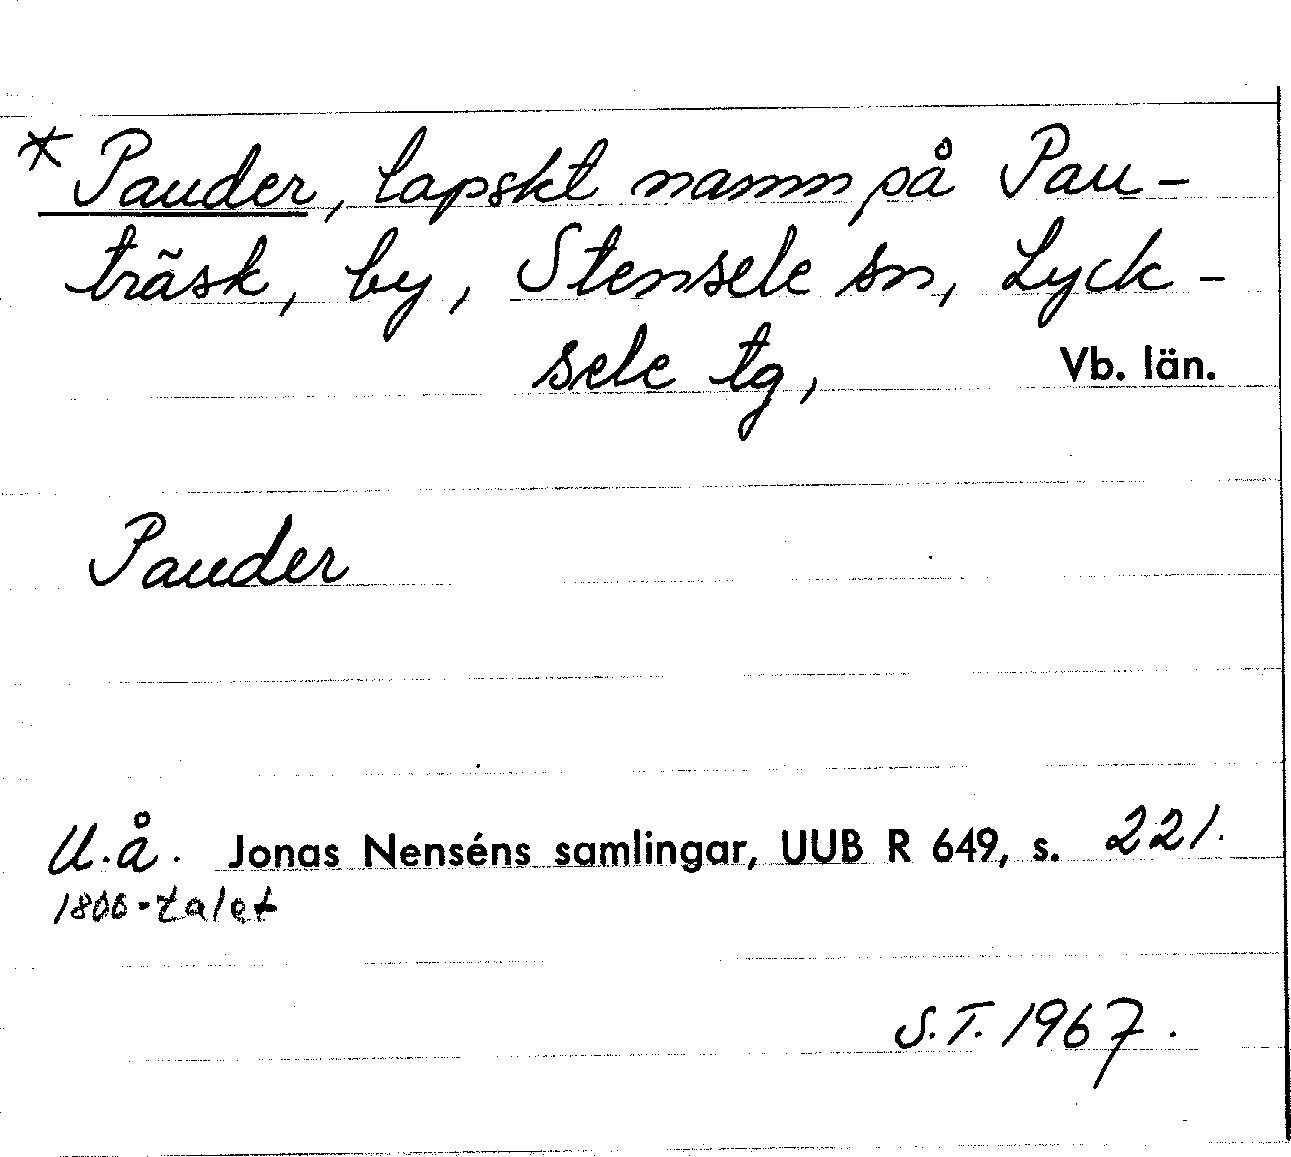 * Pauder, lapskt namn på Pau-
träsk, by, Stensele sn, Lyck-
sele tg, Vb. län.
Pauder
U.å. Jonas Nenséns samlingar, UUB R 649, s. 221.
1800-talet
S.T. 1967.